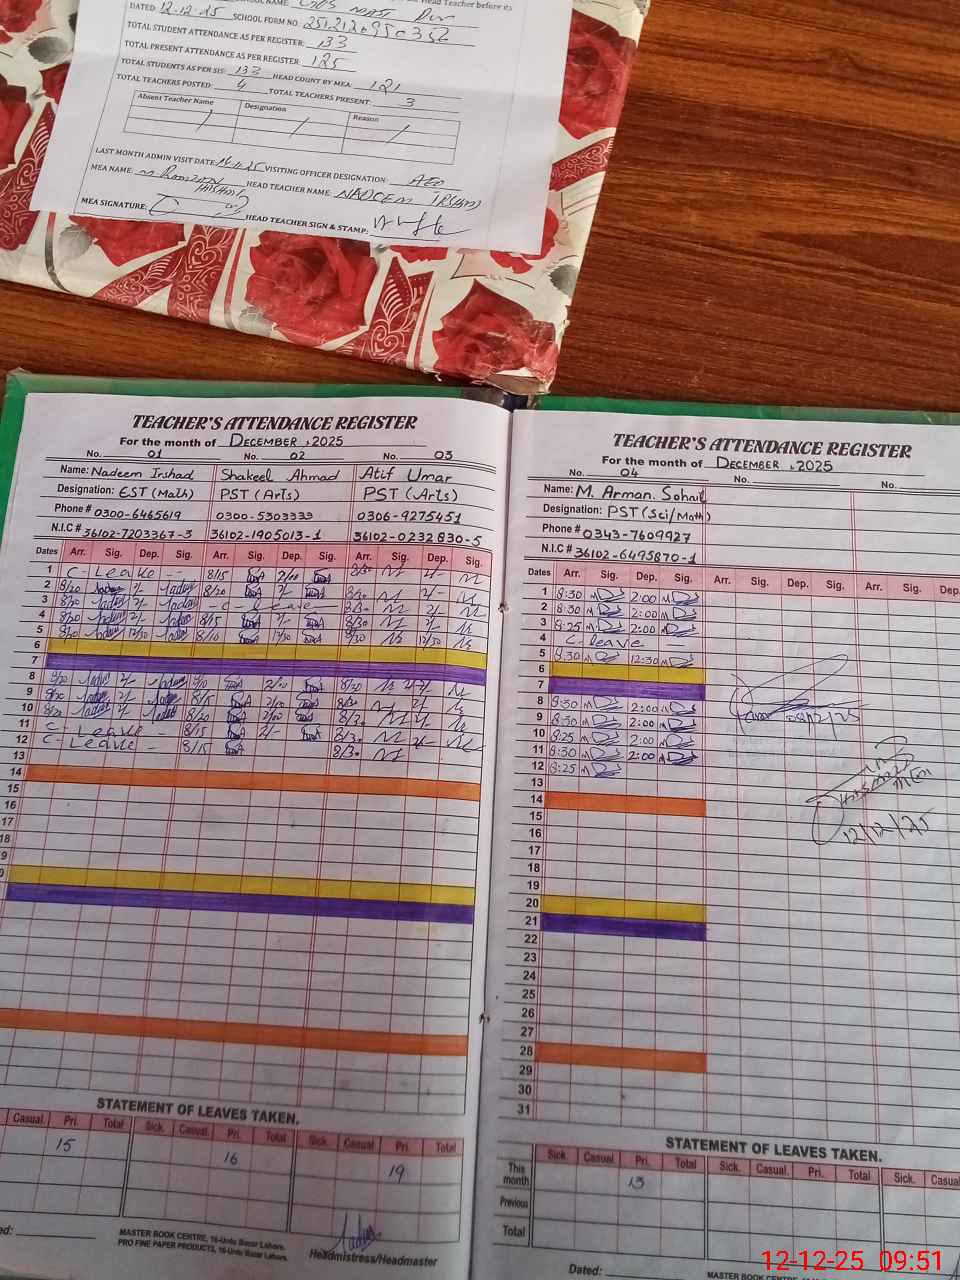 Head Teacher before its
DATED: 12-12-25 SCHOOL NAME: GPS
SCHOOL FORM NO:
TOTAL STUDENT ATTENDANCE AS PER REGISTER: 133
TOTAL PRESENT ATTENDANCE AS PER REGISTER: 125
TOTAL STUDENTS AS PER SIS: 133 HEAD COUNT BY MEA: 121
TOTAL TEACHERS POSTED: 4 TOTAL TEACHERS PRESENT: 3
Absent Teacher Name Designation Reason
LAST MONTH ADMIN VISIT DATE: VISITING OFFICER DESIGNATION: AEO
MEA NAME: M Ramzan HEAD TEACHER NAME: NADEEM IRSHAD
MEA SIGNATURE: HEAD TEACHER SIGN & STAMP:
TEACHER'S ATTENDANCE REGISTER
For the month of DECEMBER ,2025
No. 01 No. 02 No. 03
Name: Nadeem Irshad Shakeel Ahmad Atif Umar
Designation: EST (Math) PST (Arts) PST (Arts)
Phone # 0300-6465619 0300-5303333 0306-9275451
N.I.C # 36102-7203367-3 36102-1905013-1 36102-0232830-5
Dates Arr. Sig. Dep. Sig. Arr. Sig. Dep. Sig. Arr. Sig. Dep. Sig.
1 C-Leave -- 8/15 2/00 8/30 2/-
2 8/20 2/- 8/20 8/30 2/-
3 8/20 2/- -C-Leave- 8/30 2/-
4 8/20 2/- 8/15 2/- 8/30 2/-
5 8/20 12/30 8/10 12/30 8/30 12/30
6
7
8 8/20 2/- 8/10 2/00 8/30 2/-
9 8/20 2/- 8/15 2/00 8/30 2/-
10 8/20 2/- 8/20 2/00 8/30
11 C-Leave - 8/15 2/- 8/30 2/-
12 C-Leave - 8/15 8/30
13
14
15
16
17
18
STATEMENT OF LEAVES TAKEN.
Casual. Pri. Total Sick. Casual. Pri. Total Sick. Casual. Pri. Total
15 16 19
MASTER BOOK CENTRE, 16-Urdu Bazar Lahore.
PRO FINE PAPER PRODUCTS, 16-Urdu Bazar Lahore.
Headmistress/Headmaster
TEACHER'S ATTENDANCE REGISTER
For the month of DECEMBER ,2025
No. 04 No. No.
Name: M. Arman. Sohail
Designation: PST (Sci/Math)
Phone # 0343-7609927
N.I.C # 36102-6495870-1
Dates Arr. Sig. Dep. Sig. Arr. Sig. Dep. Sig. Arr. Sig. Dep.
1 8:30 2:00
2 8:30 2:00
3 8:25 2:00
4 C-Leave -
5 8:30 12:30
6
7
8 8:30 2:00
9 8:30 2:00
10 8:25 2:00
11 8:30 2:00
12 8:25
13
14
15
16
17
18
19
20
21
22
23
24
25
26
27
28
29
30
31
12/12/25
STATEMENT OF LEAVES TAKEN.
Sick. Casual. Pri. Total Sick. Casual. Pri. Total Sick. Casual
This month 13
Previous
Total
Dated:
MASTER BOOK
12-12-25 09:51